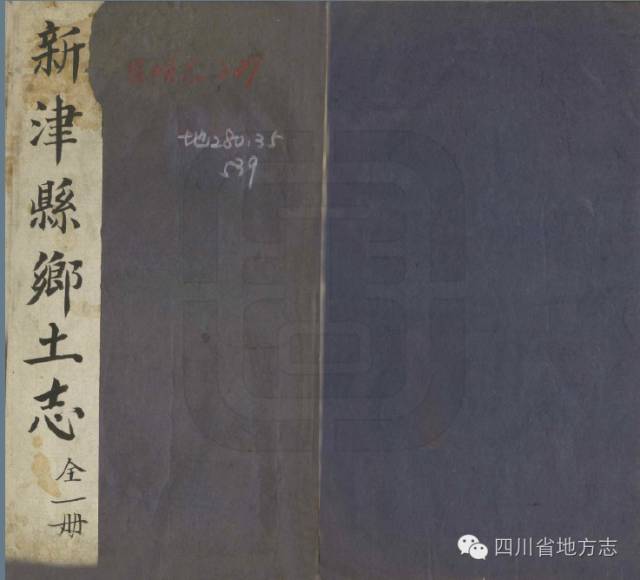 新津縣鄉土志
全一册
地280.35
539
四川省地方志